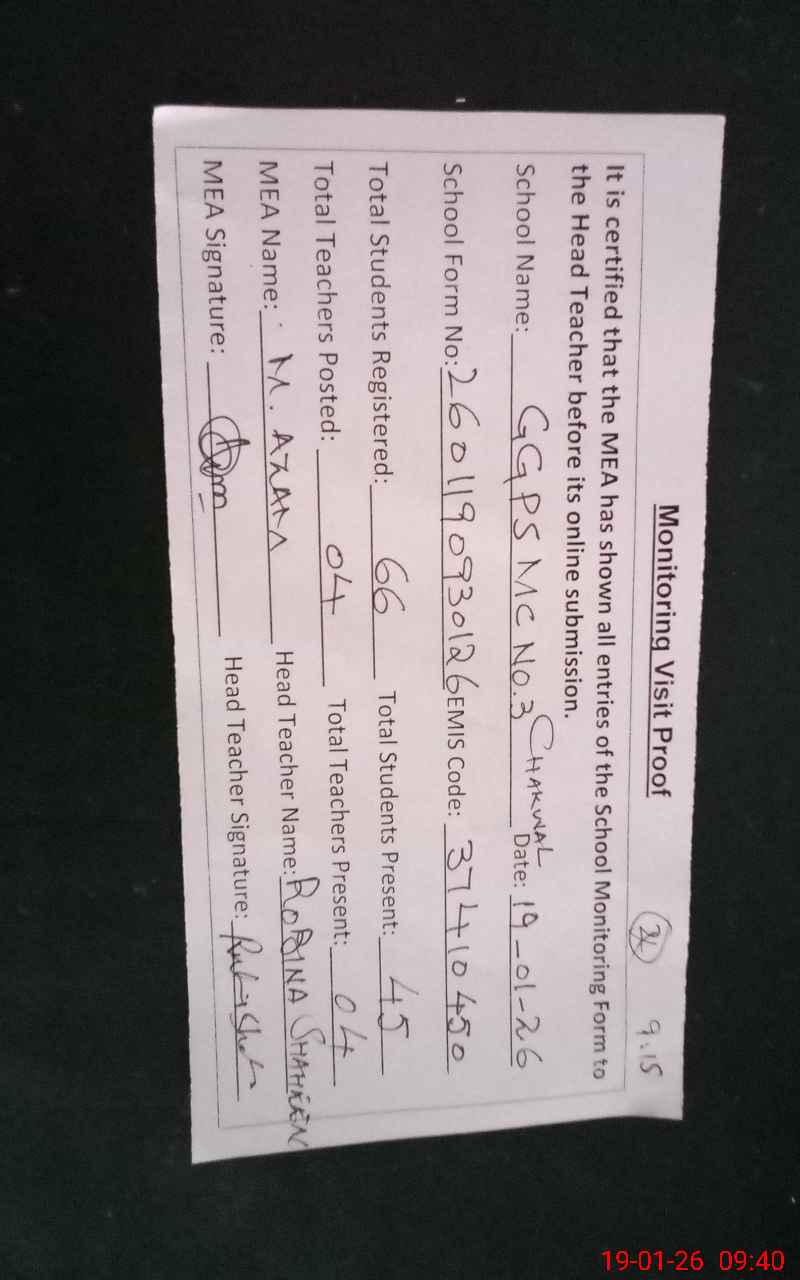 Monitoring Visit Proof
9:15
It is certified that the MEA has shown all entries of the School Monitoring Form to
the Head Teacher before its online submission.
School Name: GGPS MC No.3 CHAKWAL Date: 19-01-26
School Form No: 2601190930126 EMIS Code: 37410450
Total Students Registered: 66 Total Students Present: 45
Total Teachers Posted: 04 Total Teachers Present: 04
MEA Name: M. AZAM Head Teacher Name: ROBINA SHAHEEN
MEA Signature: Head Teacher Signature:
19-01-26 09:40